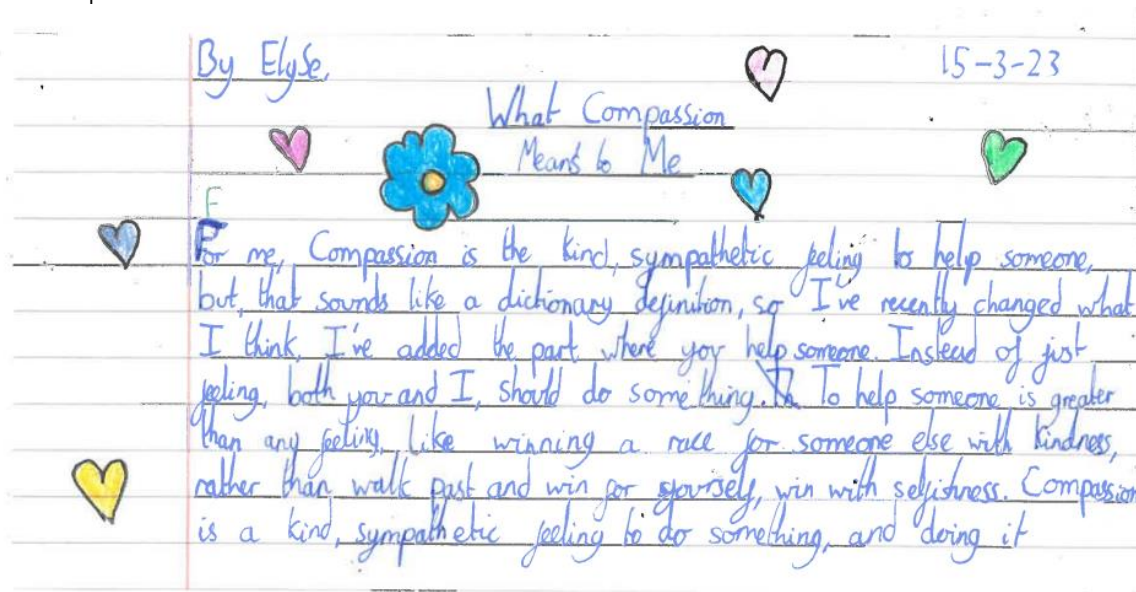 By Elyse,
15-3-23
What Compassion
Means to Me
F
For me, Compassion is the kind, sympathetic feeling to help someone,
but, that sounds like a dictionary definition, so I've recently changed what
I think, I've added the part where you help someone. Instead of just
feeling, both you and I, should do something. To help someone is greater
than any feeling, like winning a race for someone else with kindness,
rather than walk past and win for yourself, win with selfishness. Compassion
is a kind, sympathetic feeling to do something, and doing it